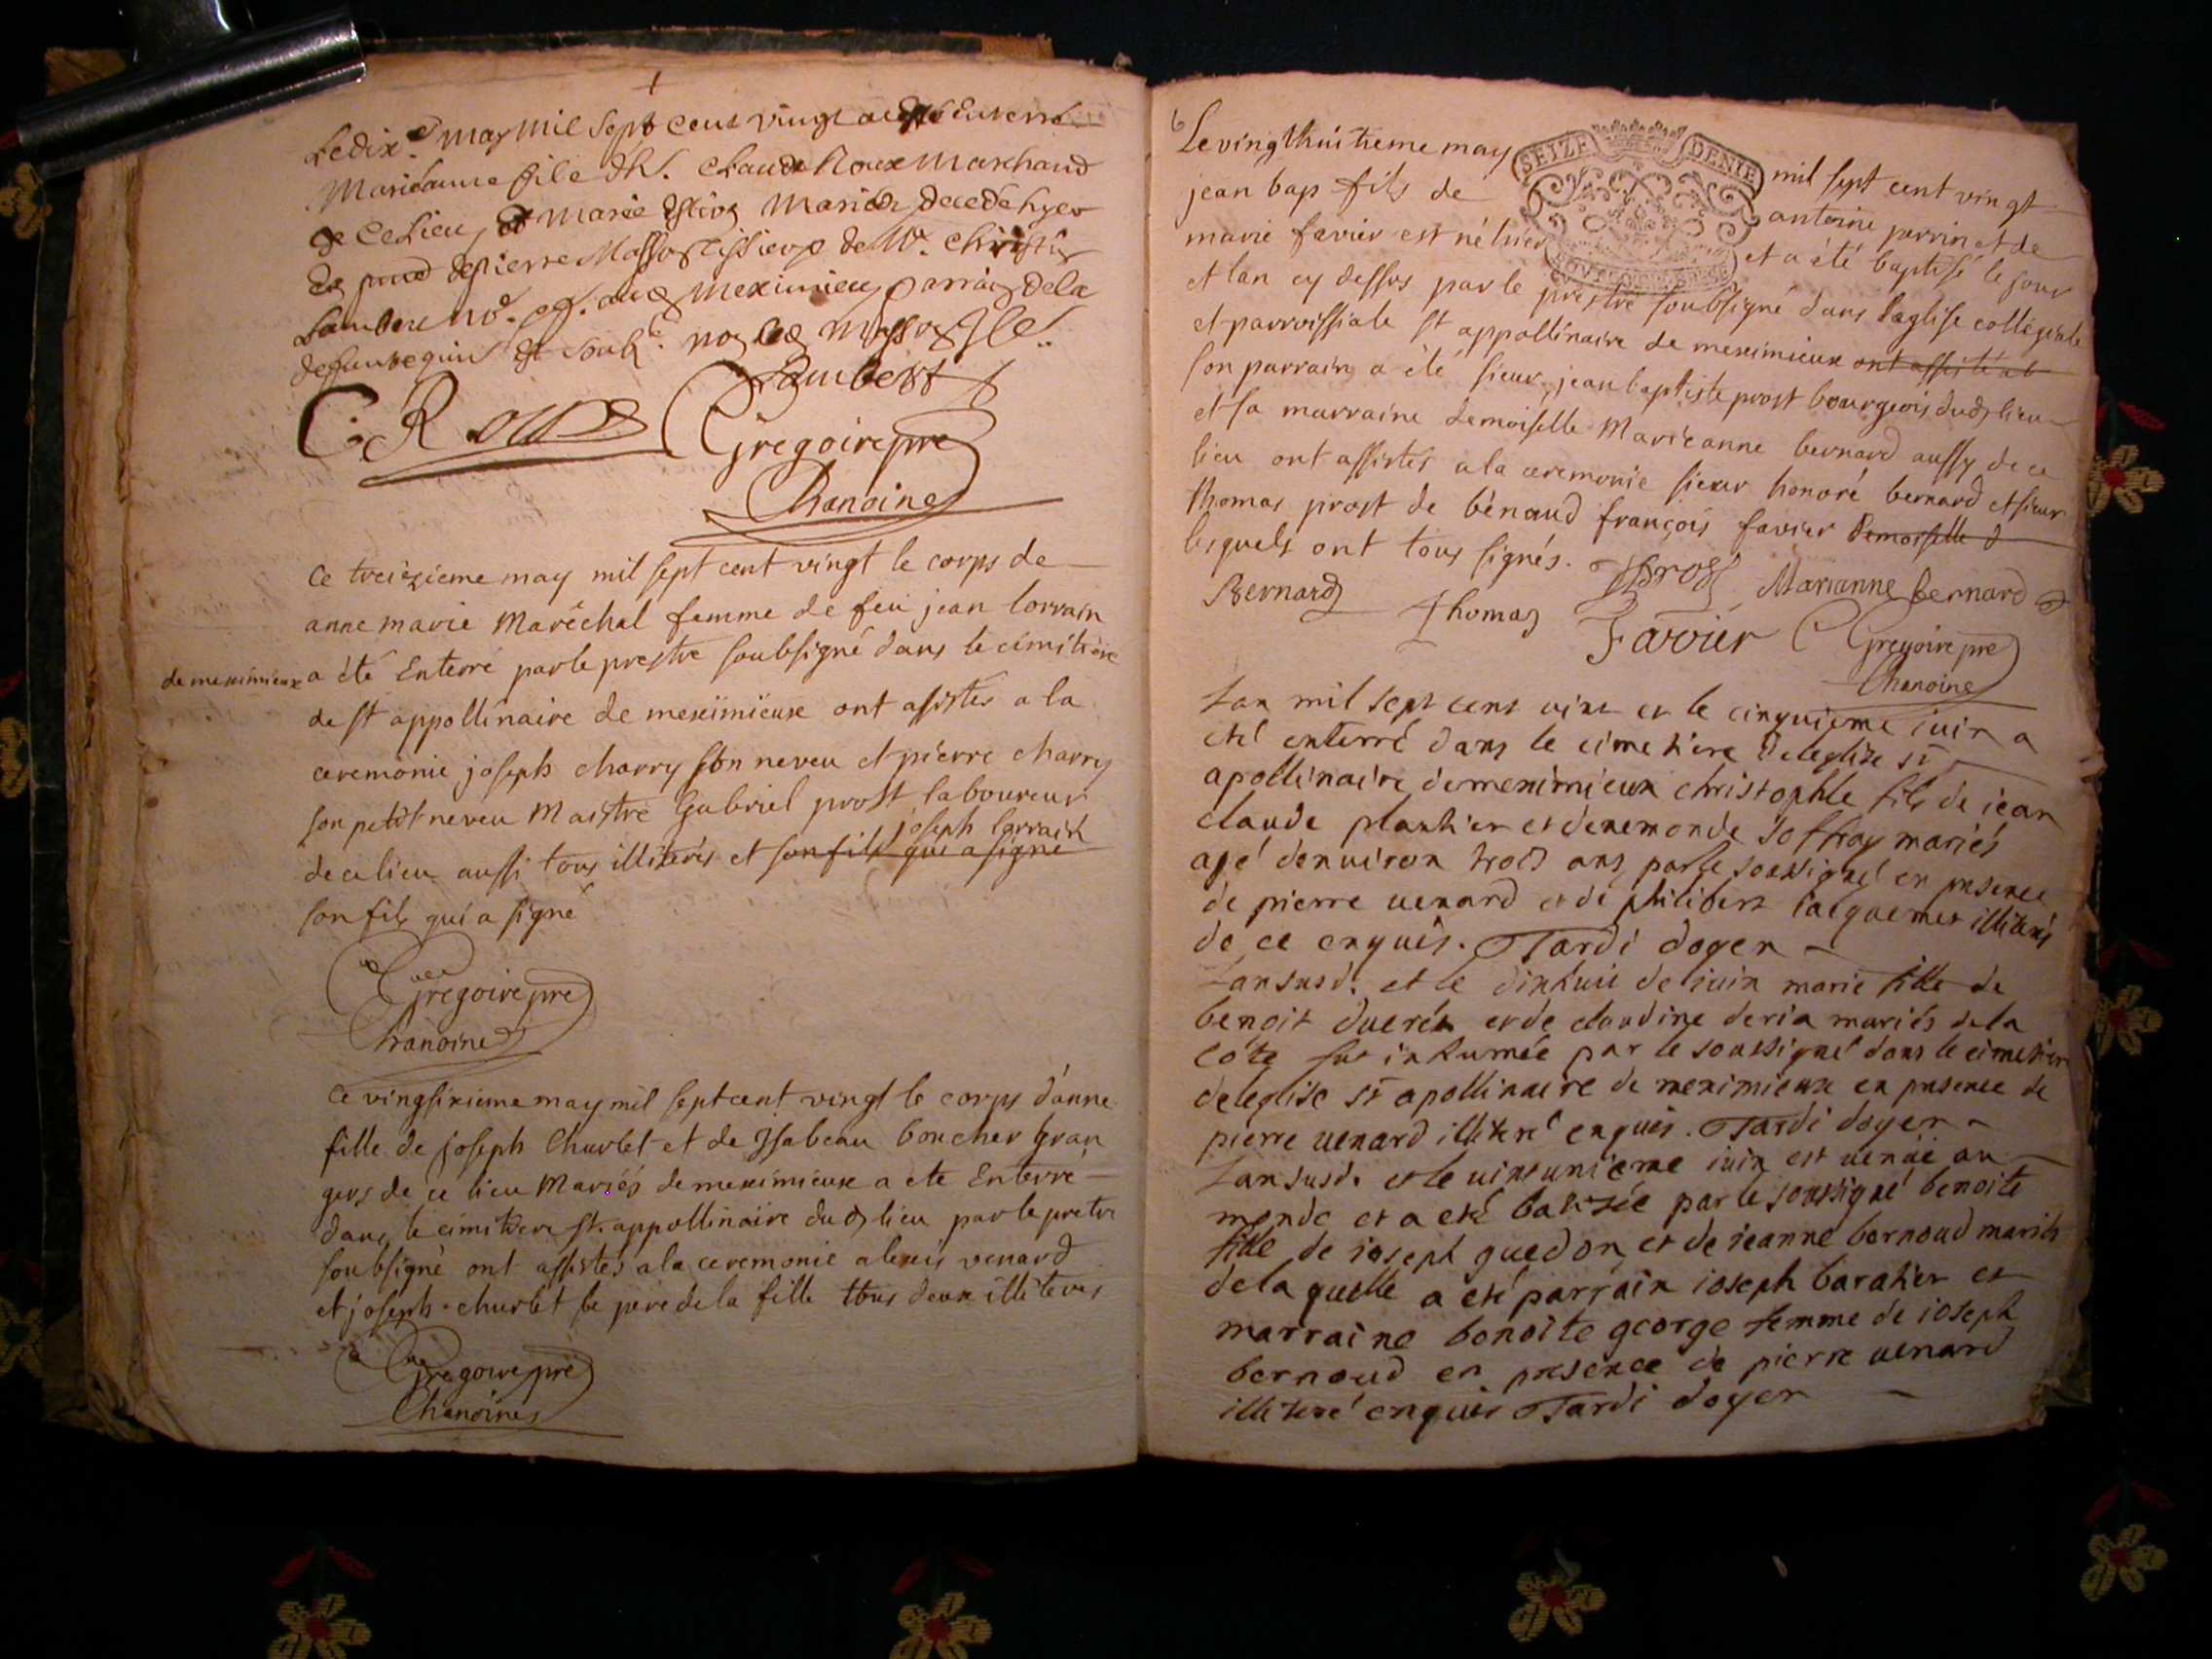 Le dix.e may mil sept cent vingt a este Enterré
Marieanne file d h.
Claude Roux Marchand
de ce Lieu et Marie
Mariés decedé hyer
En pnce de pierre de Mr. Christ
Lambert no. Meximieu parrain de la
defunte
C. Roux
Lambert
Gregoire pre
Chanoine
Ce treizieme may mil sept cent vingt le corps de
anne marie Maréchal femme de feu jean lorrain
de meximieux
a été Enterré par le prestre soubsigné dans le cimitière
de st appollinaire de meximieux ont assistés a la
ceremonie joseph charry son neveu et pierre charry
son petit neveu Maistre Gabriel prost laboureur
joseph lorrain
de ce lieu aussi tous illiterés et son fils qui a signé
son fils qui a signé
Gregoire pre
Chanoine
Ce vingsixieme may mil sept cent vingt le corps d'anne
fille de joseph Churlet et de Isabeau boucher gran
gers de ce lieu Mariés de meximieux a ete Enterré
dans le cimitiere st. appollinaire dud lieu par le pretre
soubsigné ont assistés a la ceremonie alexis venard
et joseph churlet le pere de la fille tous deux illiterés
Gregoire pre
Chanoine
6
Le vingthuitieme may mil sept cent vingt
SEIZE DENIE
jean bap fils de antoine perrin et de
marie favier est né hier et a été baptisé le jour
et lan cy dessus par le prestre soubsigné dans leglise collegiale
et parroissiale st appollinaire de meximieux ont assisté al
son parrain a été sieur jean baptiste prost bourgeois dud lieu
et sa marraine demoiselle Marieanne bernard aussy de ce
lieu ont assistés a la ceremonie sieur honoré bernard et sieur
thomas prost de bénaud françois favier demoiselle d
lesquels ont tous signés.
Prost
Marianne Bernard
Bernard
Thomas
Favier
Gregoire pre
Chanoine
Lan mil sept cent vint et le cinquieme iuin a
eté enterré dans le cimetiere de leglise st
apollinaire de meximieux christophle fils de iean
claude plantier et denemonde Joffray mariés
agé denuiron trois ans par le soussigné en pnsence
de pierre uenard et de philibert iacquemet illiterés
de ce enquis. Tardi doyen
Lan susd. et le dixhuit de iuin marie fille de
benoit Guerin et de claudine deria mariés de la
cote fut inhumée par le soussigné dans le cimetiere
de leglise st apollinaire de meximieux en pnsence de
pierre uenard illiteré enquis. Tardi doyen
Lan susd. et le uintunieme iuin est uenüe au
monde et a eté batisée par le soussigné benoite
fille de ioseph guedon et de ieanne bernoud mariés
de la quelle a eté parrain ioseph baratier et
marraine benoite george femme de ioseph
bernoud en presence de pierre uenard
illiteré enquis Tardi doyen